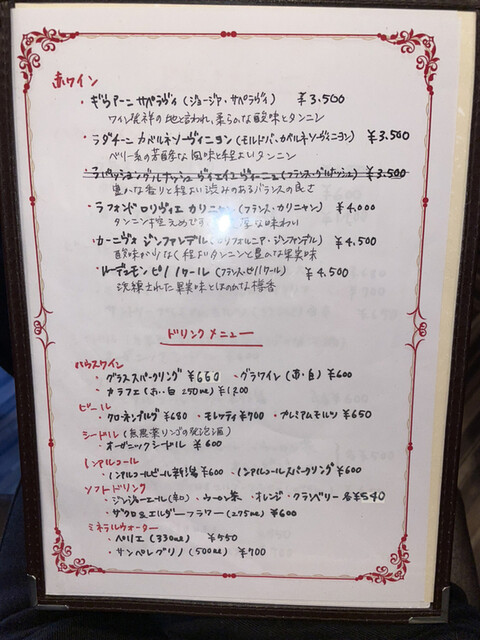 赤ワイン
・ギウアーニ サペラヴィ (ジョージア・サペラヴィ) ¥3,500
ワイン発祥の地と言われ、柔らかな酸味とタンニン
・ラダチーニ カベルネソーヴィニヨン (モルドバ・カベルネソーヴィニヨン) ¥3,500
ベリー系の芳醇な風味と程よいタンニン
・ラパッション グルナッシュ ヴィエイユ ヴィーニュ (フランス・グルナッシュ) ¥3,500
豊かな香りと程よい渋みのあるバランスの良さ
・ラフォンド ロリヴィエ カリニャン (フランス・カリニャン) ¥4,000
タンニン控えめです 味わい
・カーニヴォ ジンファンデル リフォルニア・ジンファンデル) ¥4,500
酸味が少なく程よいタンニンと豊かな果実味
・ルーデュモン ピノノワール (フランス・ピノノワール) ¥4,500
洗練された果実味とほのかな樽香
ドリンクメニュー
ハウスワイン
・グラススパークリング ¥660 ・グラスワイン (赤・白) ¥600
・カラフェ (赤・白 250ml) ¥1,200
ビール
・クローネンブルグ ¥680 ・モレッティ ¥700 ・プレミアムモルツ ¥650
シードル (無農薬リンゴの発泡酒)
・オーガニックシードル ¥600
ノンアルコール
・ノンアルコールビール ¥600 ・ノンアルコールスパークリング ¥600
ソフトドリンク
・ジンジャーエール (辛口) ・ウーロン茶 ・オレンジ ・クランベリー 各¥540
・ザクロ&エルダーフラワー (275ml) ¥600
ミネラルウォーター
・ペリエ (330ml) ¥550
・サンペレグリノ (500ml) ¥700